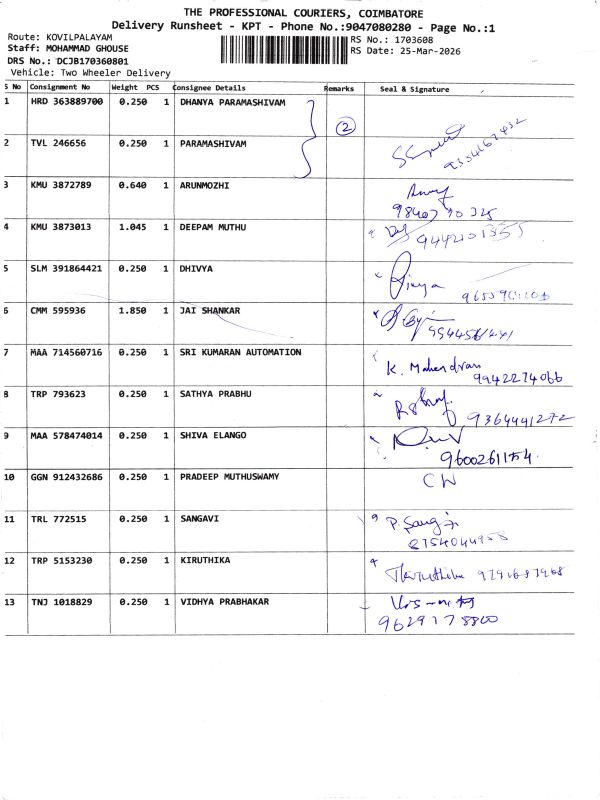 THE PROFESSIONAL COURIERS, COIMBATORE
Delivery Runsheet - KPT - Phone No.:9047080280 - Page No.:1
Route: KOVILPALAYAM RS No.: 1703608
Staff: MOHAMMAD GHOUSE RS Date: 25-Mar-2026
DRS No.: DCJB170360801
Vehicle: Two Wheeler Delivery
S No Consignment No Weight PCS Consignee Details Remarks Seal & Signature
1 HRD 363889700 0.250 1 DHANYA PARAMASHIVAM
2
2 TVL 246656 0.250 1 PARAMASHIVAM
3 KMU 3872789 0.640 1 ARUNMOZHI
4 KMU 3873013 1.045 1 DEEPAM MUTHU
5 SLM 391864421 0.250 1 DHIVYA
6 CMM 595936 1.850 1 JAI SHANKAR
7 MAA 714560716 0.250 1 SRI KUMARAN AUTOMATION K. Mahendran
9942274066
8 TRP 793623 0.250 1 SATHYA PRABHU
9364441272
9 MAA 578474014 0.250 1 SHIVA ELANGO
9600261154
10 GGN 912432686 0.250 1 PRADEEP MUTHUSWAMY CW
11 TRL 772515 0.250 1 SANGAVI
12 TRP 5153230 0.250 1 KIRUTHIKA
13 TNJ 1018829 0.250 1 VIDHYA PRABHAKAR
9629178800